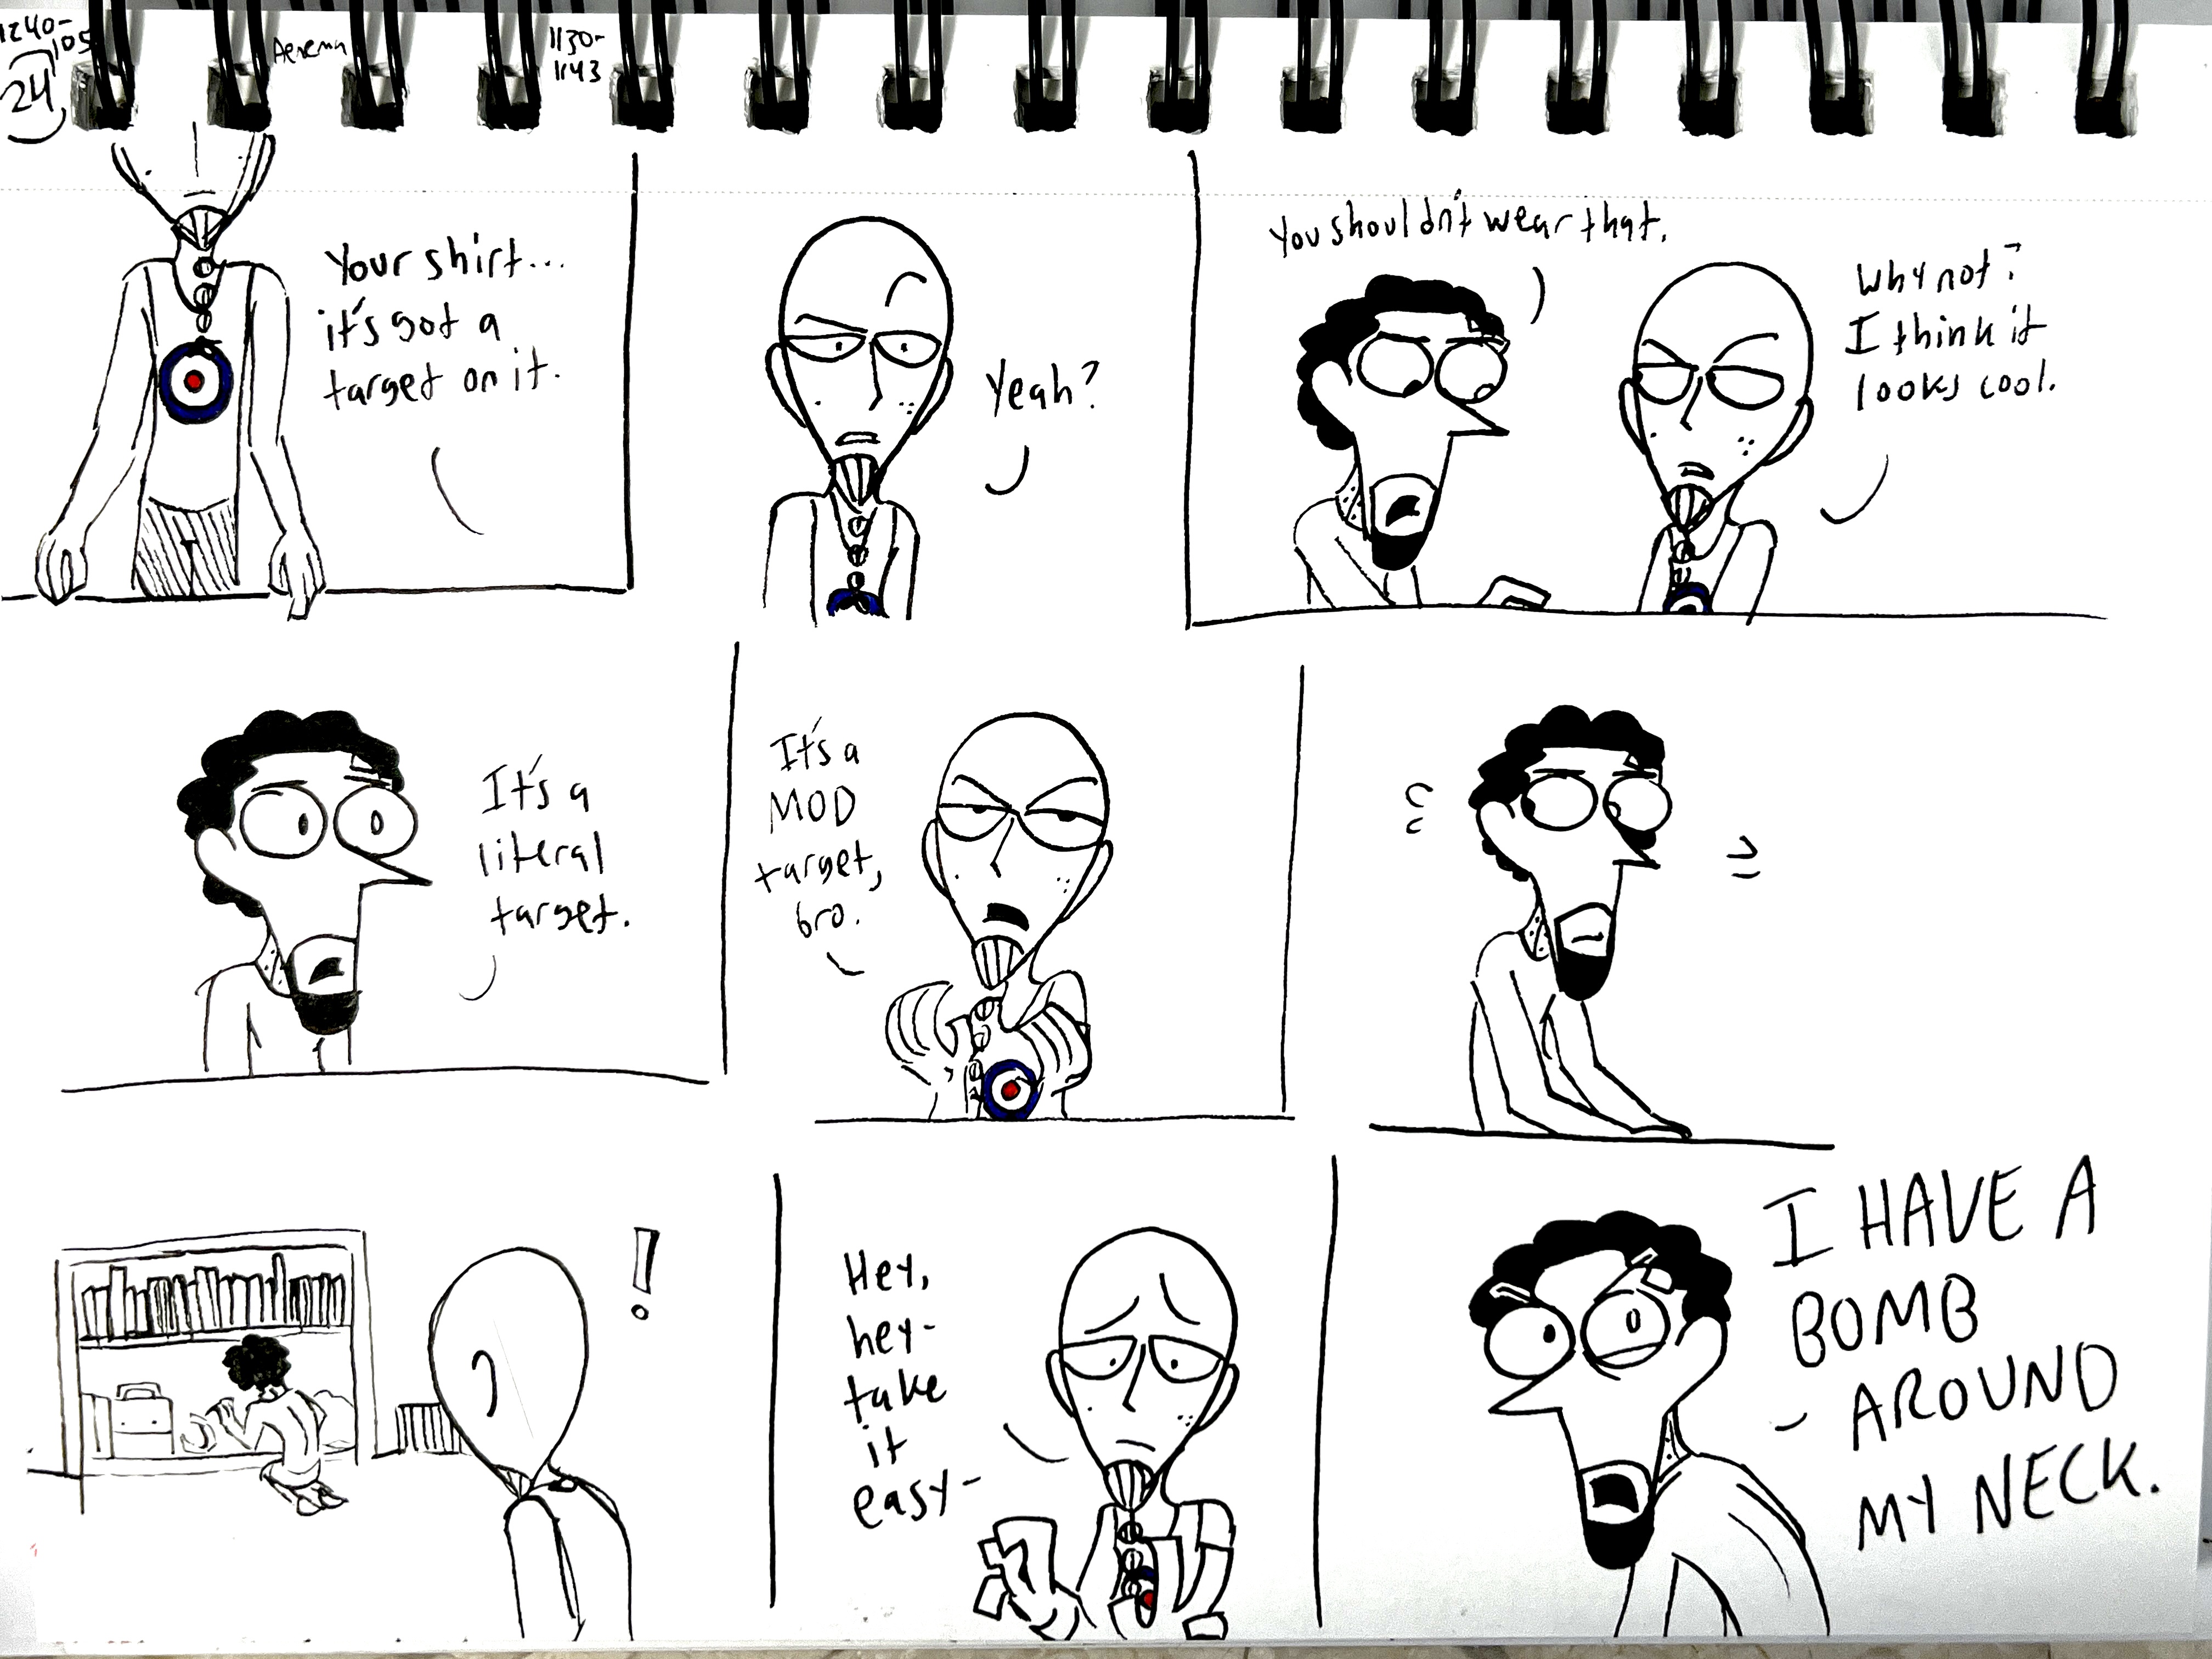 1240-
105
24
Aenema
1130-
1143
Your shirt...
it's got a
target on it.
Yeah?
You shouldn't wear that.
Why not?
I think it
looks cool.
It's a
literal
target.
It's a
MOD
target,
bro.
!
Hey,
hey-
take
it
easy-
I HAVE A
BOMB
AROUND
MY NECK.